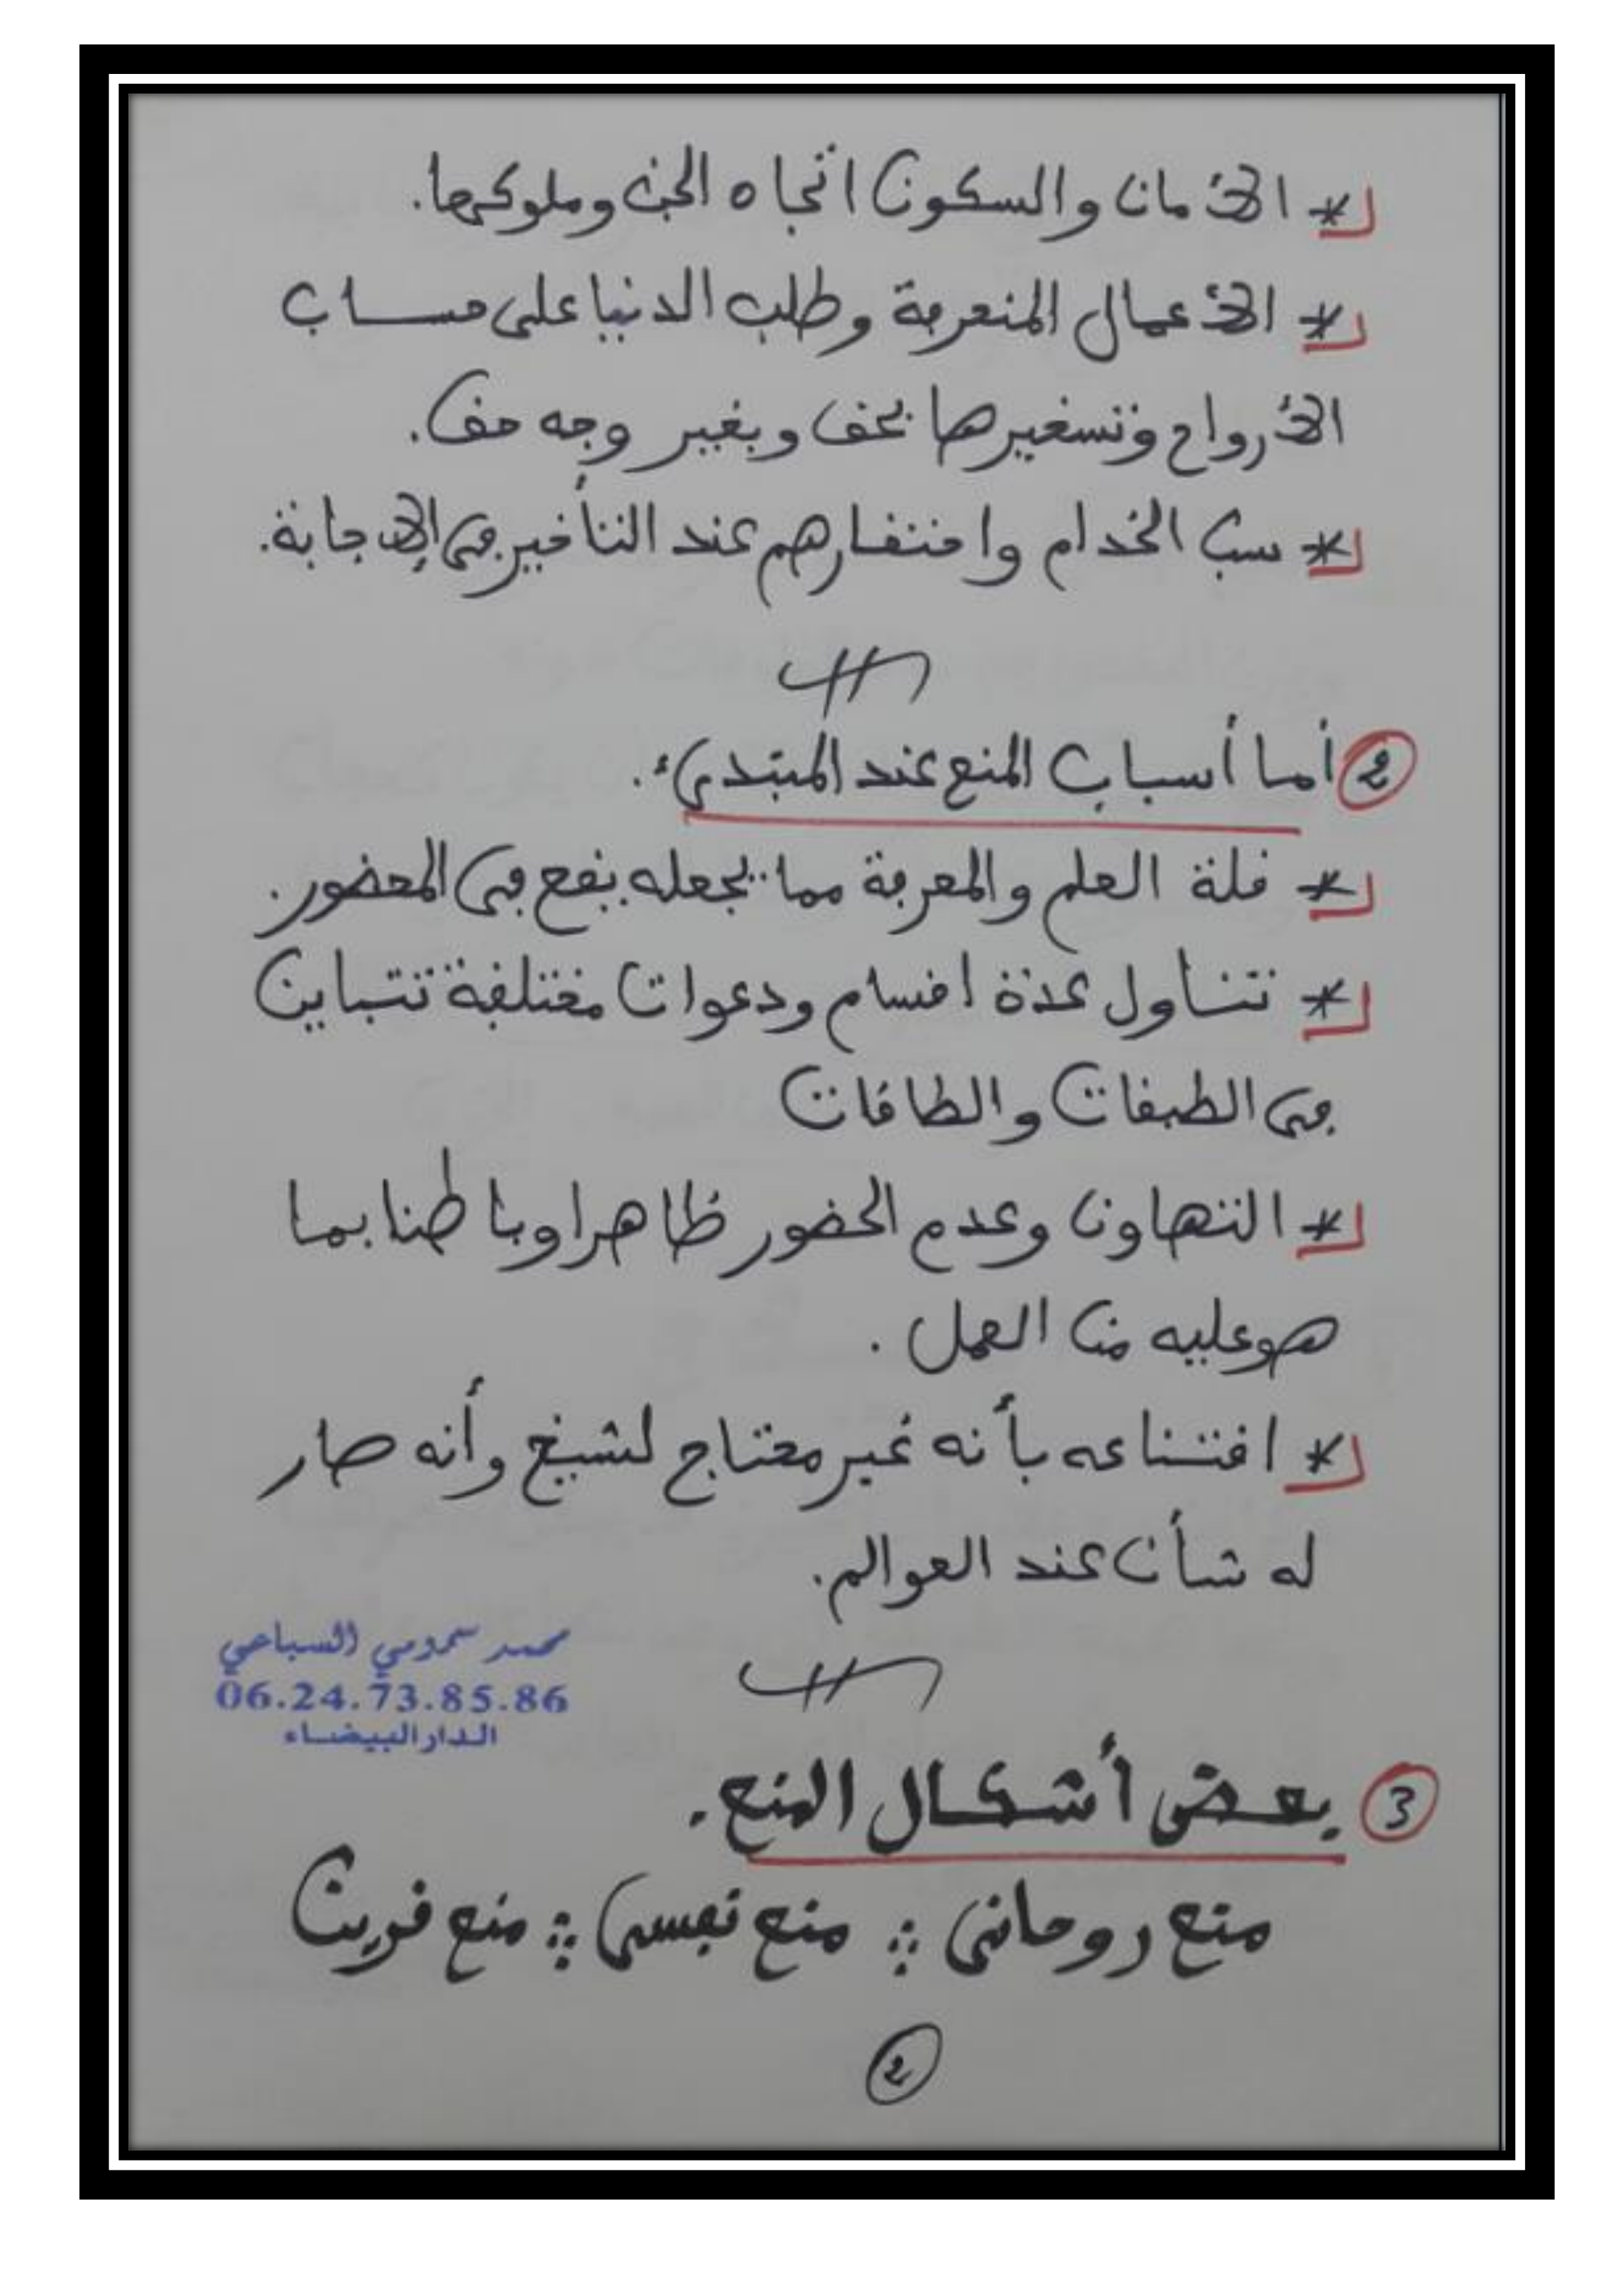 * الأمان والسكون اتجاه الجن وملوكها.
* الأعمال المنحرفة وطلب الدنيا على حساب
الأرواح وتسخيرها بحق وبغير وجه حق.
* سب الخدام واحتقارهم عند التأخير في الإجابة.
2 أما أسباب المنع عند المبتدئ.
* قلة العلم والمعرفة مما يجعله يقع في المحضور.
* تناول عدة اقسام ودعوات مختلفة تتباين
في الطبقات والطاقات
* التهاون وعدم الحضور ظاهرا وباطنا بما
هو عليه من العمل.
* اقتناعه بأنه غير محتاج لشيخ وأنه صار
له شأن عند العوالم.
محمد سمومي السباعي
06.24.73.85.86
الدار البيضاء
3 بعض أشكال المنع.
منع روحاني ؞ منع نفسي ؞ منع قرين
2